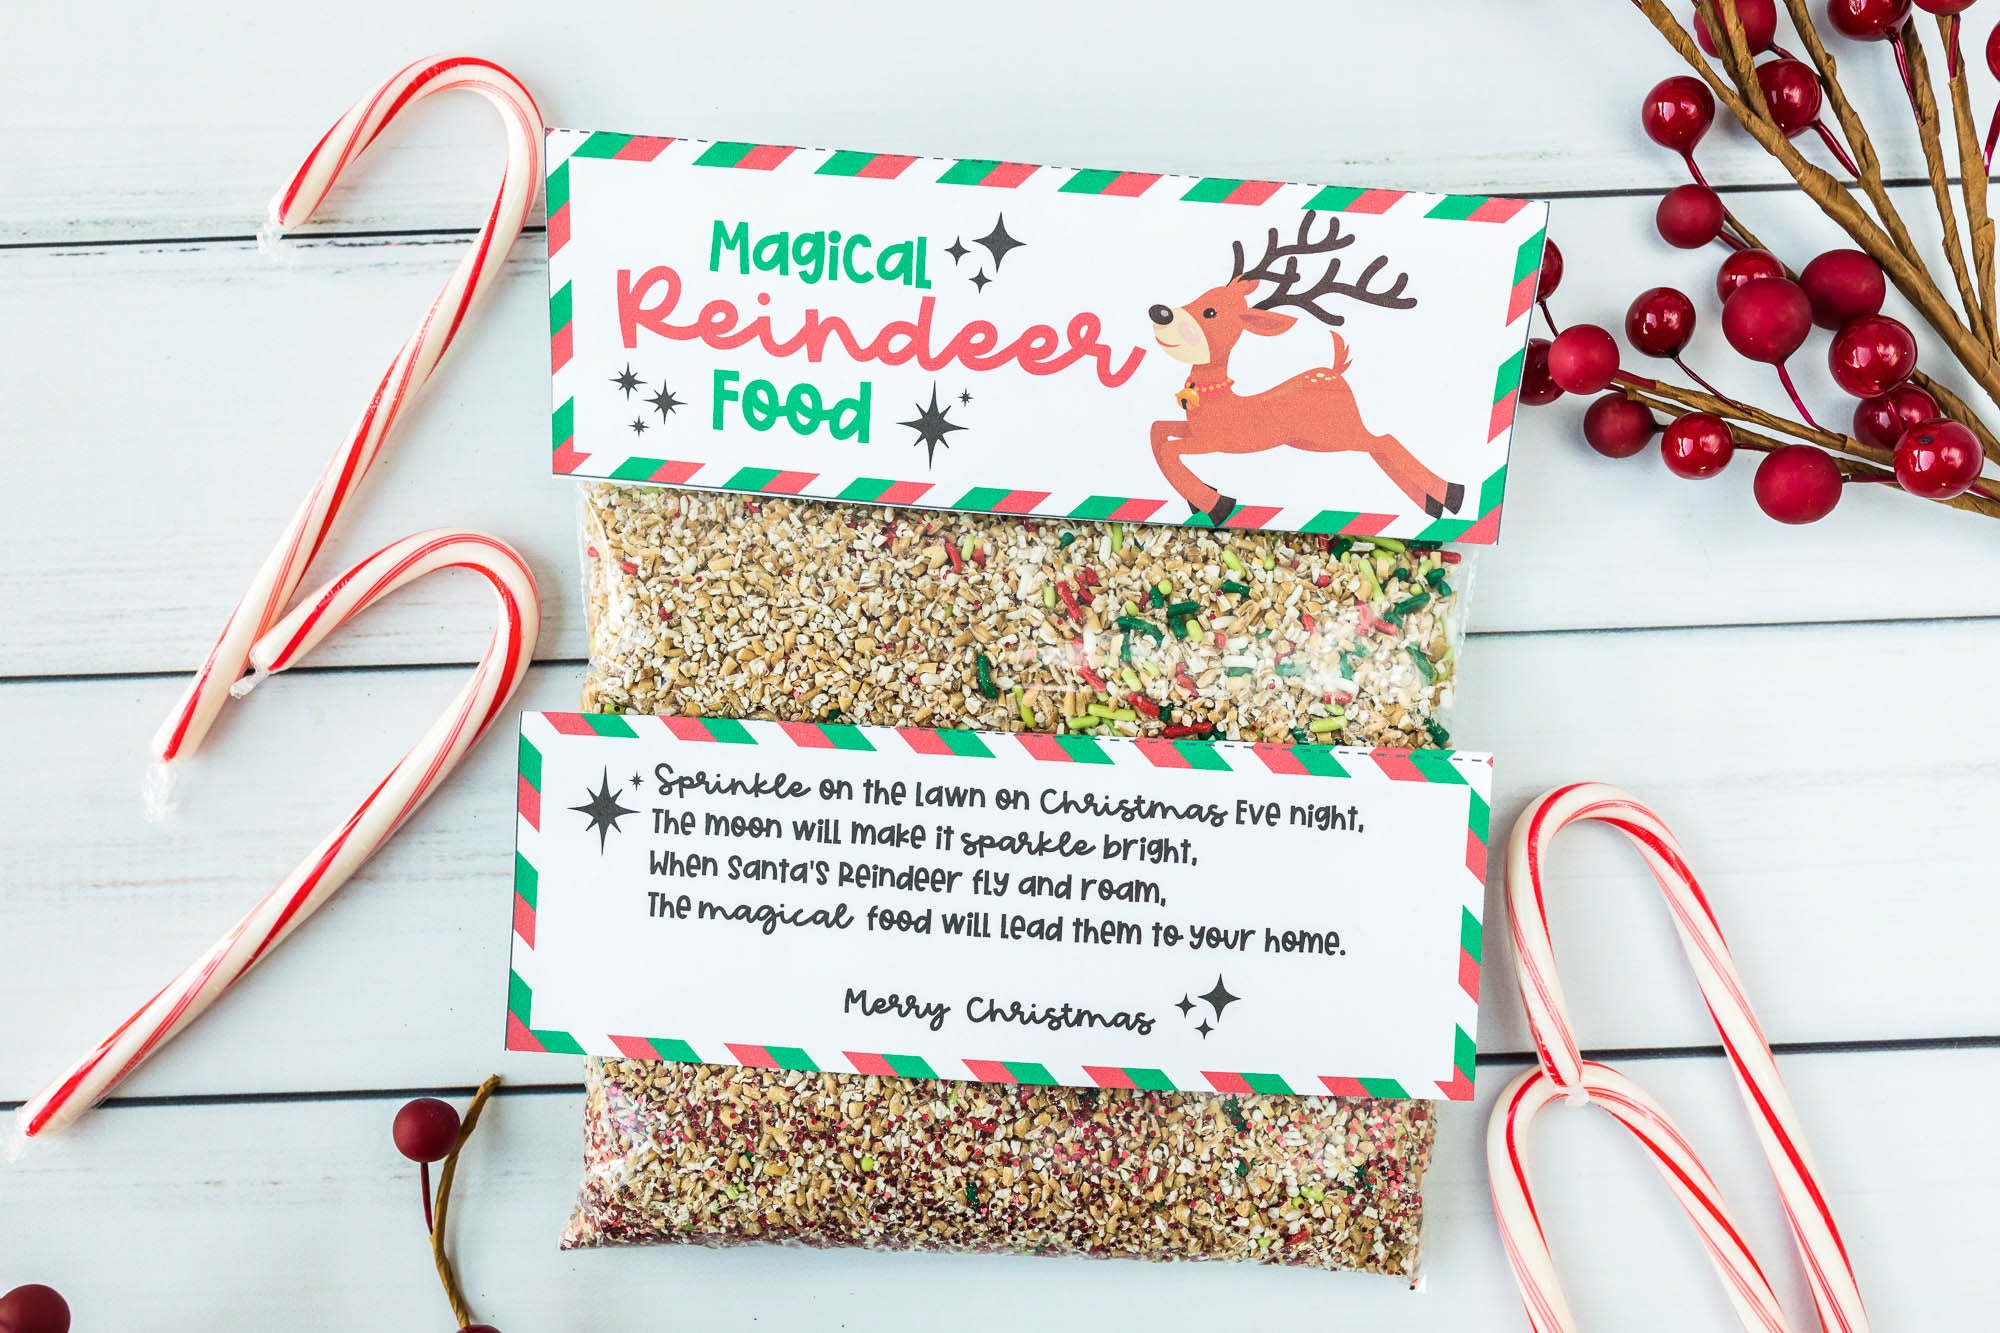 Magical
Reindeer
Food
Sprinkle on the lawn on Christmas Eve night,
The moon will make it sparkle bright,
When Santa's Reindeer fly and roam,
The magical food will lead them to your home.
Merry Christmas